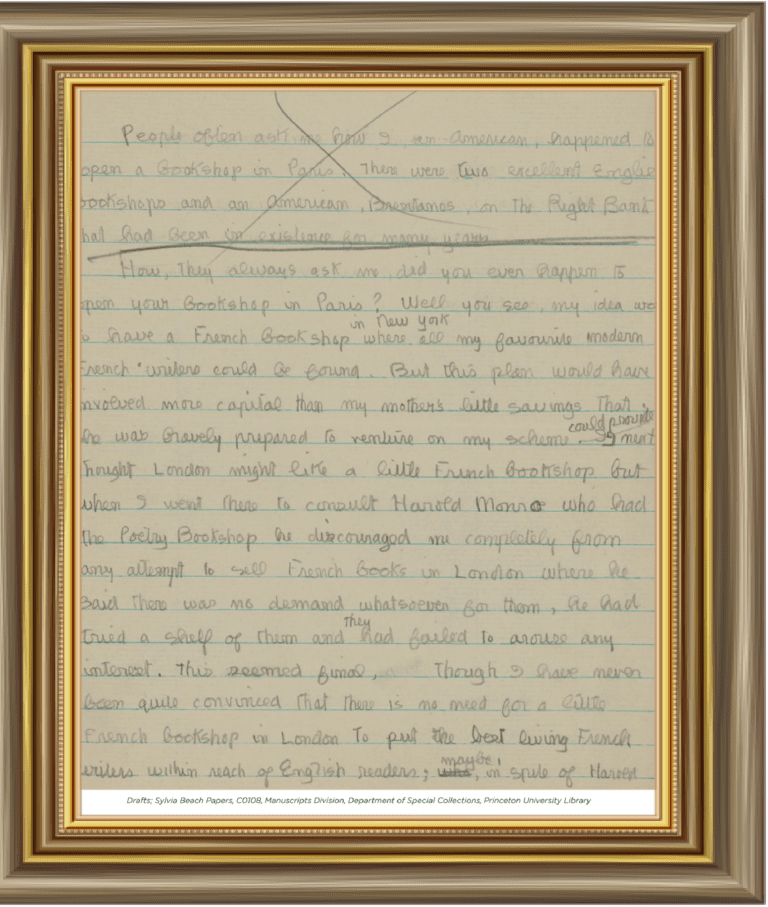 People often ask me how I, an American, happened to
open a Bookshop in Paris. There were two excellent Englis
ookshops and an American, Brentanos, on the Right Bank
hat had been in existence for many years
How, they always ask me, did you ever happen to
pen your Bookshop in Paris? Well you see, my idea wa
in New York
o have a French Bookshop where all my favourite modern
French writers could be found. But this plan would have
nvolved more capital than my mother's little savings that
could provide
he was bravely prepared to venture on my scheme. I
hought London might like a little French Bookshop but
when I went there to consult Harold Monro who had
the Poetry Bookshop he discouraged me completely from
any attempt to sell French books in London where he
said there was no demand whatsoever for them, he had
they
tried a shelf of them and had failed to arouse any
interest. This seemed final, Though I have never
been quite convinced that there is no need for a little
French Bookshop in London to put the best living French
maybe,
writers within reach of English readers; in spite of Harold
Drafts; Sylvia Beach Papers, C0108, Manuscripts Division, Department of Special Collections, Princeton University Library